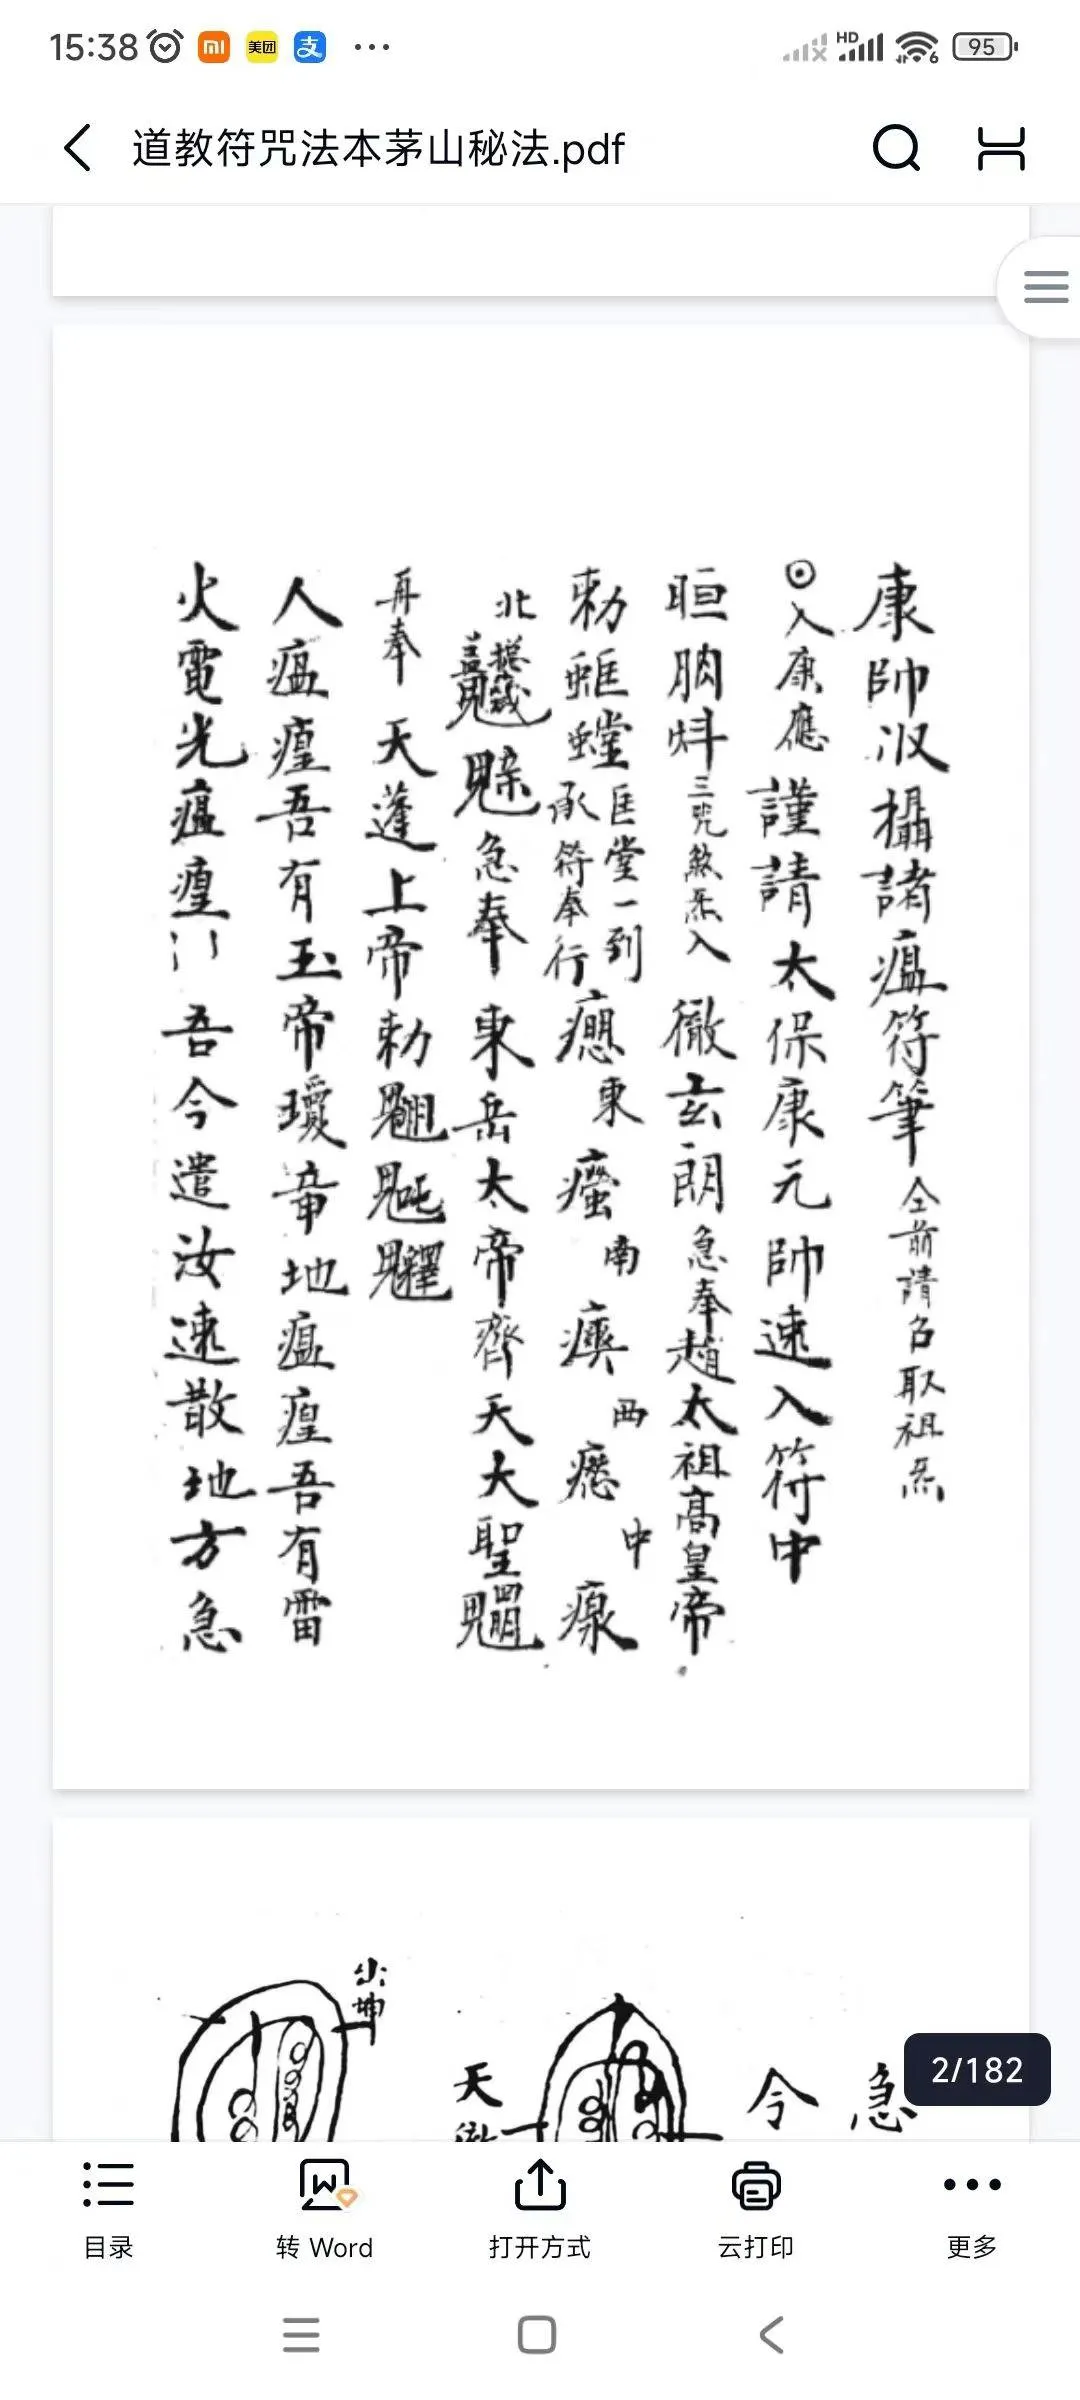 15:38 mi 美团 支 ... HD 6 95
道教符咒法本茅山秘法.pdf
康帥收攝諸瘟符筆 仝前請召取祖炁
入康應 謹請太保康元帥速入符中
三咒煞炁入 徹玄朗 急奉趙太祖高皇帝
勅 匡堂一到 承符奉行 東 南 西 中
北 急奉東岳太帝齊天大聖
再奉 天蓬上帝勅
人瘟㾮吾有玉帝瓊章地瘟㾮吾有雷
火電光瘟㾮 吾今遣汝速散地方急
急
令
天
2/182
目录
转 Word
打开方式
云打印
更多